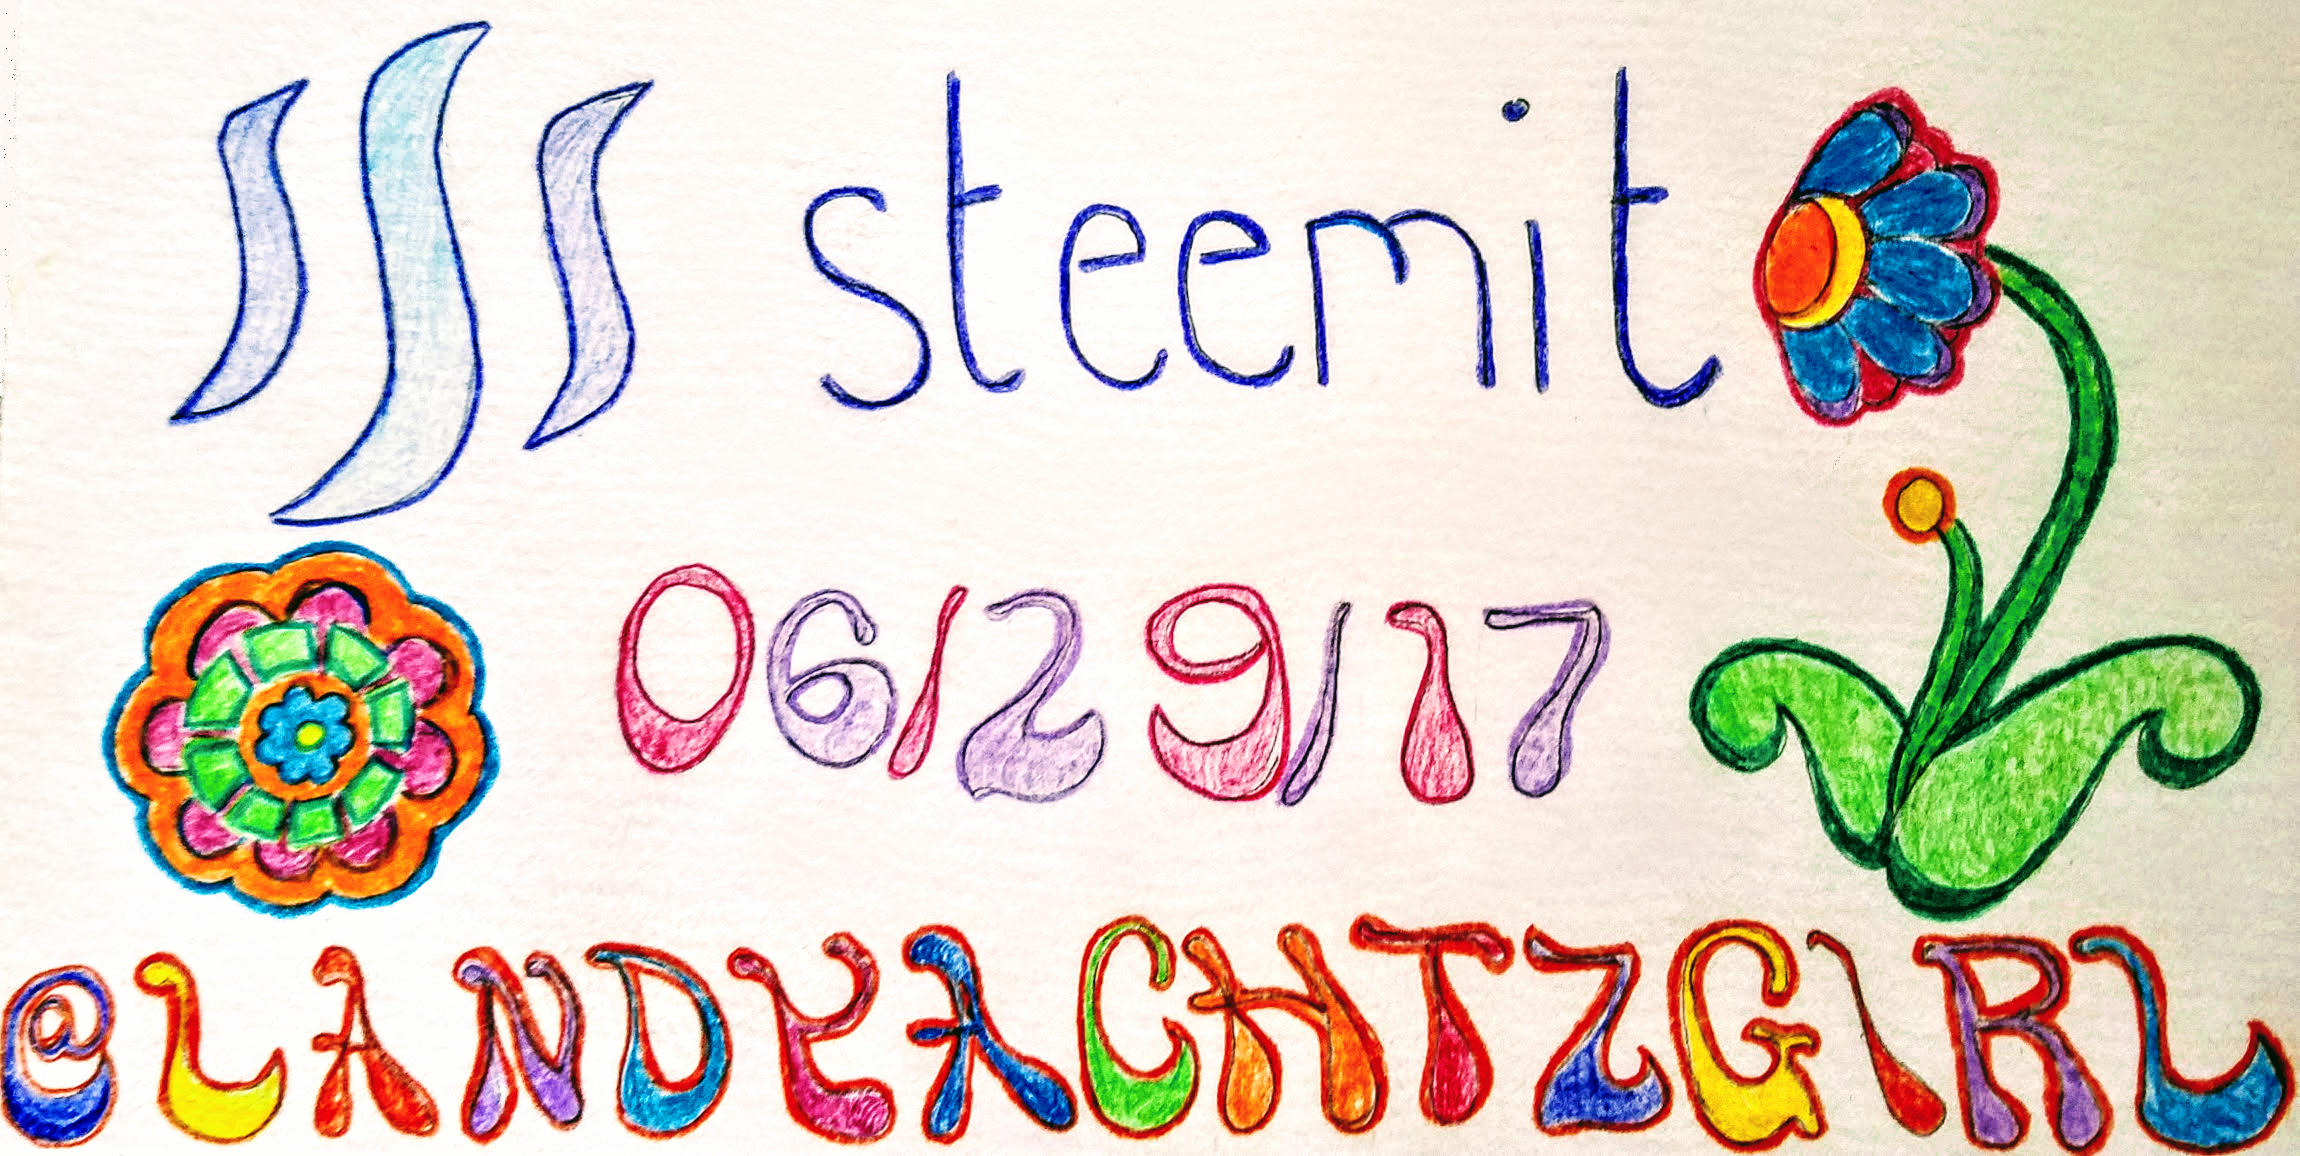 steemit
06/29/17
@LANDYACHTZGIRL